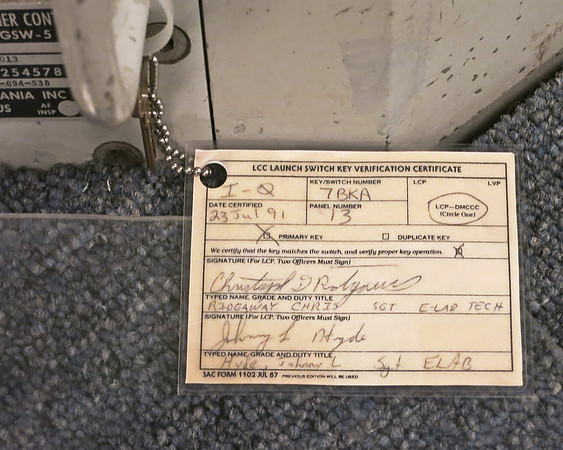 NER CONT
GSW-5
013
254578
-694-538
ANIA INC
US AF
INSP
LCC LAUNCH SWITCH KEY VERIFICATION CERTIFICATE
I-Q
KEY/SWITCH NUMBER
7BKA
LCP LVP
DATE CERTIFIED
23 Jul 91
PANEL NUMBER
13
LCP—DMCCC
(Circle One)
PRIMARY KEY DUPLICATE KEY
We certify that the key matches the switch, and verify proper key operation.
SIGNATURE (For LCP, Two Officers Must Sign)
TYPED NAME, GRADE AND DUTY TITLE
RIDGAWAY CHRIS SGT E-LAB TECH
SIGNATURE (For LCP, Two Officers Must Sign)
Johnny L Hyde
TYPED NAME, GRADE AND DUTY TITLE
Hyde, Johnny L Sgt ELAB
SAC FORM 1102 JUL 87 PREVIOUS EDITION WILL BE USED